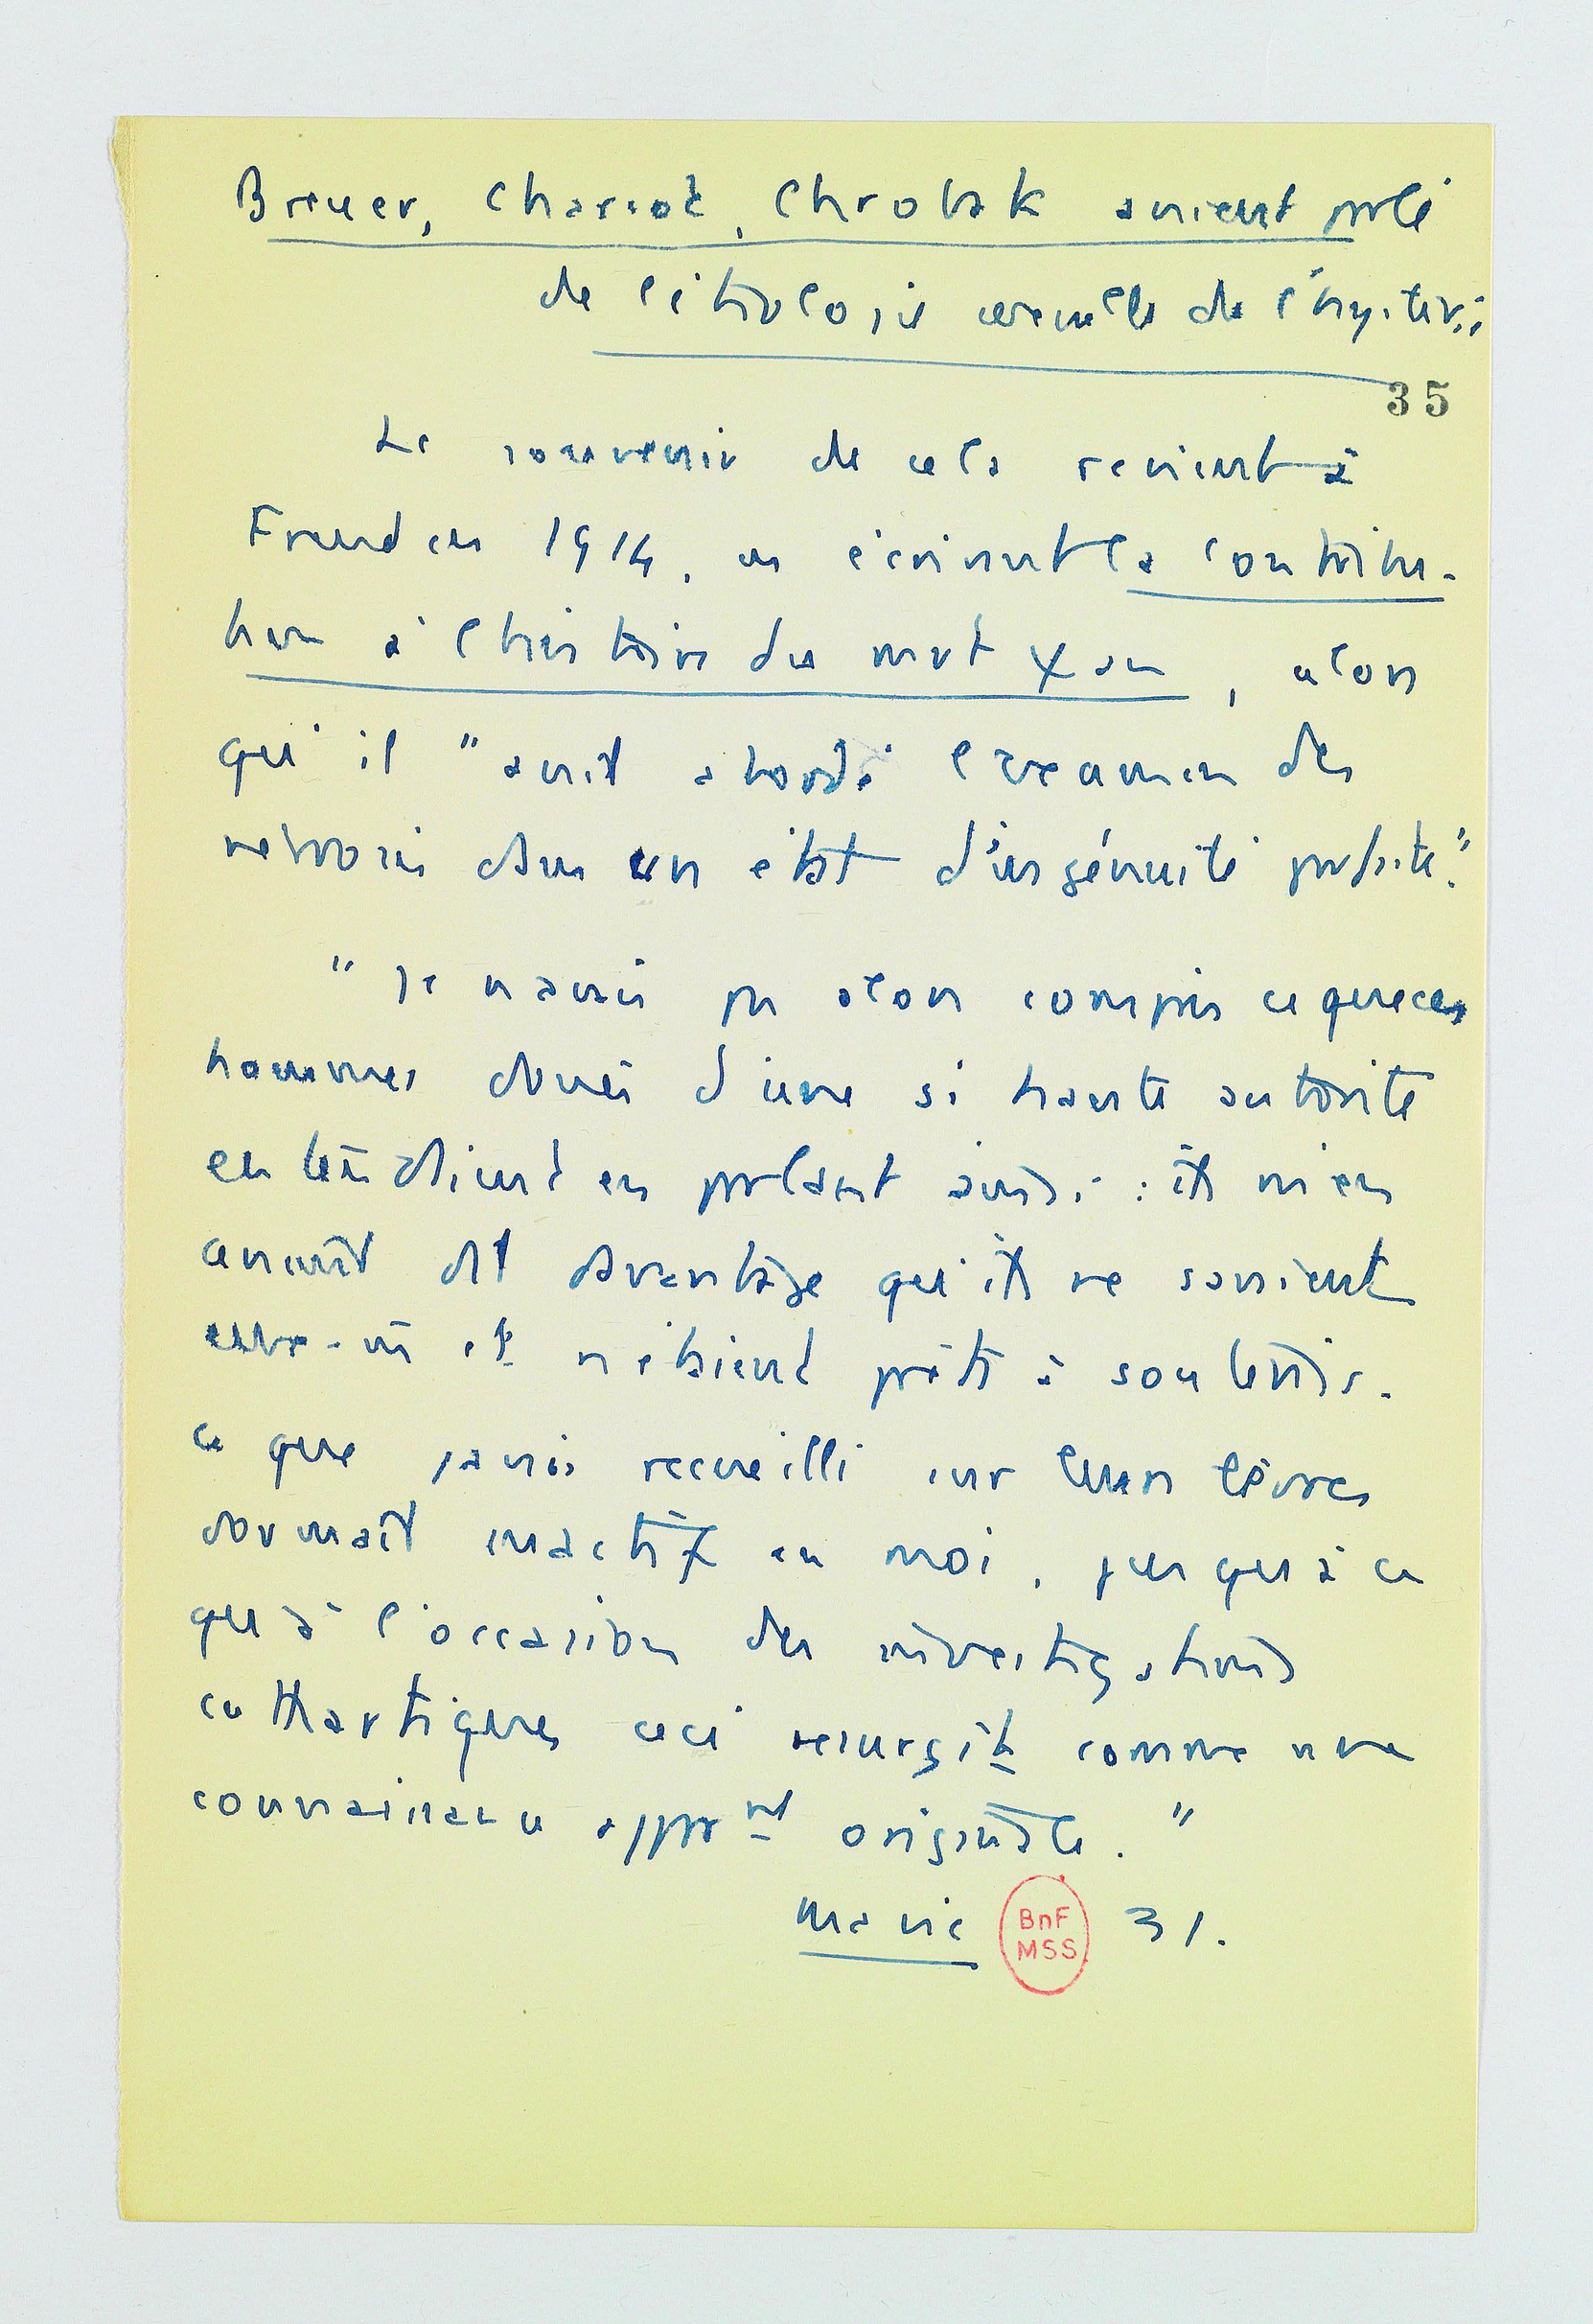 Breuer, Charcot, Chrobak avaient parlé
de l'étiologie sexuelle de l'hystérie
35
Le souvenir de cela revient à
Freud en 1914, en écrivant la contribu-
tion à l'histoire du mvt ψan, alors
qu'il "avait abordé l'examen des
névroses dans un état d'ingénuité parfaite."
"Je n'avais pas alors compris ce que ces
hommes doués d'une si haute autorité
entendaient en parlant ainsi : ils m'en
avaient dit davantage qu'ils ne savaient
eux-m̄ et n'étaient prêts à soutenir.
Ce que j'avais recueilli sur leurs lèvres
dormait inactif en moi, jusqu'à ce
qu'à l'occasion des investigations
cathartiques ceci resurgit comme une
connaissance appar nt originale."
Ma vie 31.
BnF
MSS